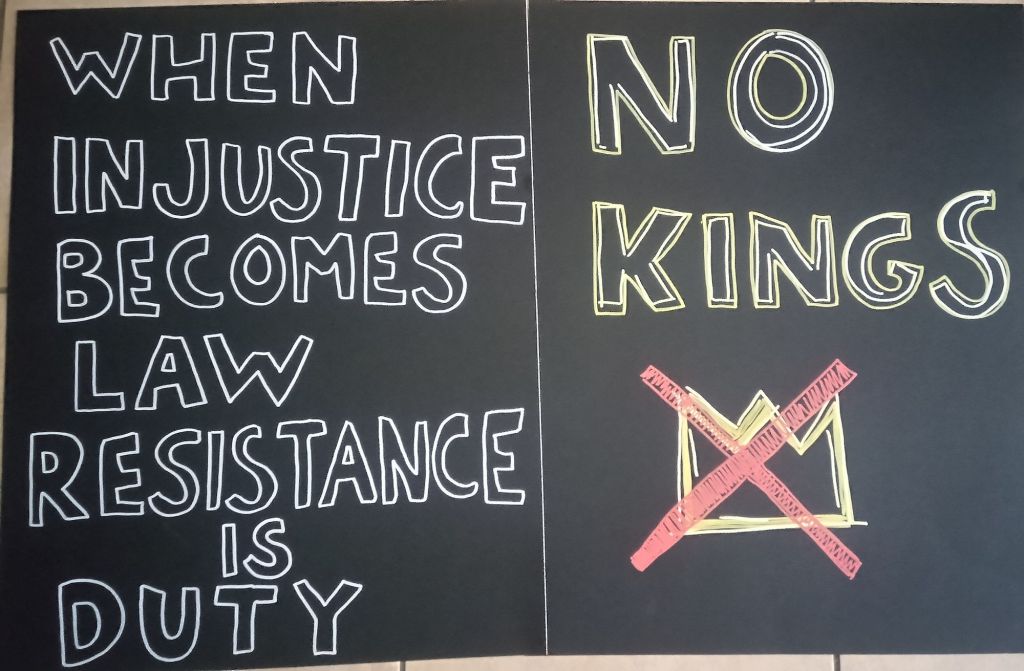 WHEN
INJUSTICE
BECOMES
LAW
RESISTANCE
IS
DUTY
NO
KINGS